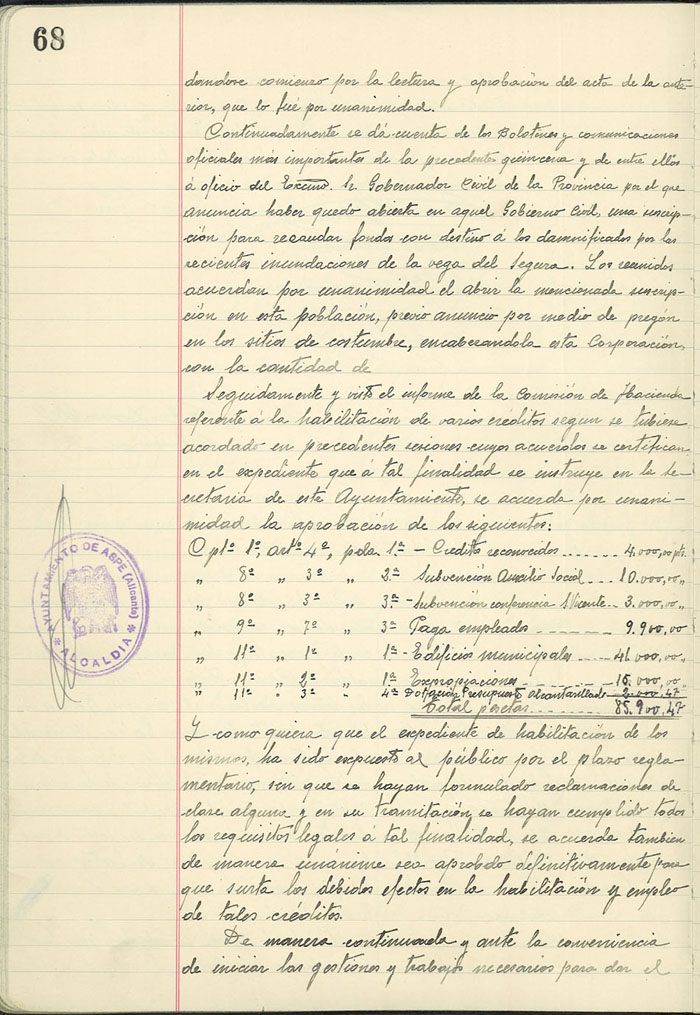 68
dandose comienzo por la lectura y aprobación del acta de la ante-
rior, que lo fué por unanimidad.
Continuadamente se dá cuenta de los Boletines y comunicaciones
oficiales más importantes de la precedente quincena y de entre ellos
á oficio del Excmo. Sr. Gobernador Civil de la Provincia por el que
anuncia haber quedo abierta en aquel Gobierno Civil, una suscrip-
ción para recaudar fondos con destino á los damnificados por las
recientes inundaciones de la vega del Segura. Los reunidos
acuerdan por unanimidad el abrir la mencionada suscrip-
ción en esta población, previo anuncio por medio de pregón
en los sitios de costumbre, encaberandola esta Corporación,
con la cantidad de
Seguidamente y visto el informe de la Comisión de Hacienda
referente á la habilitación de varios créditos segun se tubiese
acordado en precedentes sesiones cuyos acuerdos se certifican
en el expediente que á tal finalidad se instruye en la Se-
cretaria de este Ayuntamiento, se acuerda por unani-
midad la aprobación de los siguientes:
Cptº 1º, artº 4º, pda 1ª - Creditos reconocidos ........ 4.000,00 pts.
" 8º " 3º " 2ª Subvención Auxilio Social ... 10.000,00 "
" 8º " 3º " 3ª - Subvención conferencia S Vicente .. 3.000,00 "
" 9º " 7º " 3ª Paga empleados .......... 9.900,00
" 11º " 1º " 1ª - Edificios municipales ...... 41.000,00 "
" 11º " 2º " 1ª Expropiaciones .......... 15.000,00 "
" 11º " 3º " 4ª Dotación Presupuesto alcantarillado .. 2.000,47
Total pesetas ........ 85.900,47
Y como quiera que el expediente de habilitación de los
mismos, ha sido expuesto al público por el plazo regla-
mentario, sin que se hayan formulado reclamaciones de
clase alguna y en su tramitación se hayan cumplido todos
los requisitos legales á tal finalidad, se acuerda tambien
de manera unánime sea aprobdo definitivamente para
que surta los debidos efectos en la habilitación y empleo
de tales créditos.
De manera continuada y ante la conveniencia
de iniciar las gestiones y trabajos necesarios para dar el
AYUNTAMIENTO DE ASPE (Alicante)
* ALCALDIA *